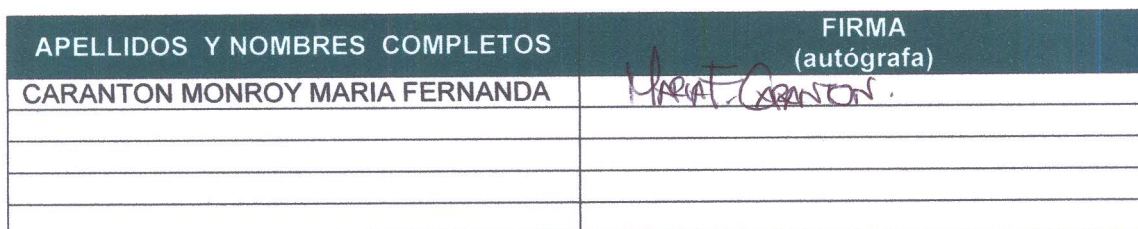 APELLIDOS Y NOMBRES COMPLETOS
FIRMA
(autógrafa)
CARANTON MONROY MARIA FERNANDA
MARIA F. CARANTON.